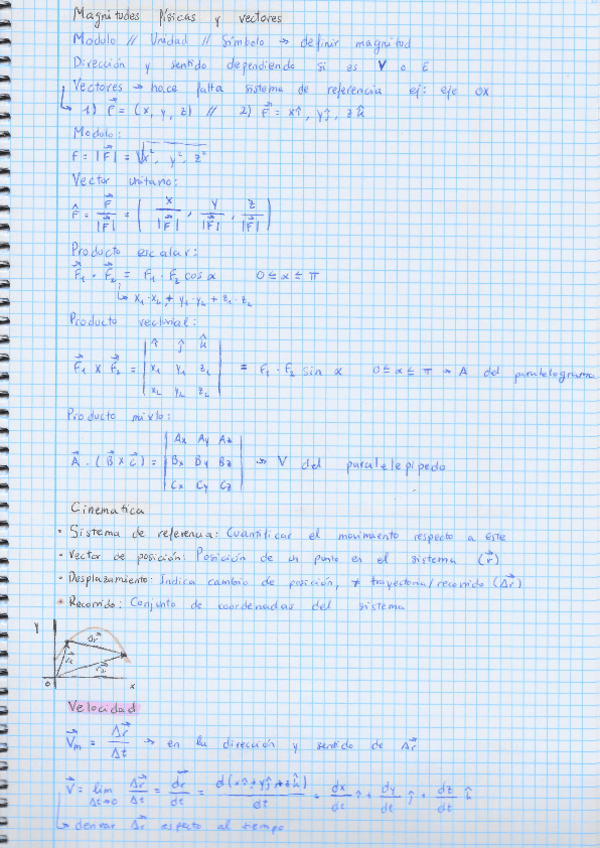 Magnitudes físicas y vectores
Modulo // Unidad // Símbolo → definir magnitud
Dirección y sentido dependiendo si es V o E
Vectores → hace falta sistema de referencia ej: eje OX
↳ 1) r⃗ = (x, y, z) // 2) F⃗ = xî, yĵ, zk̂
Modulo:
F = |F⃗| = √x², y², z²
Vector unitario:
F̂ = F⃗/|F⃗| = (x/|F⃗|, y/|F⃗|, z/|F⃗|)
Producto escalar:
F⃗₁ · F⃗₂ = F₁ · F₂ cos α 0 ≤ α ≤ π
↳ x₁·x₂ + y₁·y₂ + z₁·z₂
Producto vectorial:
î ĵ k̂
F⃗₁ x F⃗₂ = | x₁ y₁ z₁ | = F₁ · F₂ sin α 0 ≤ α ≤ π → A del paralelogramo
x₂ y₂ z₂
Producto mixto:
Ax Ay Az
A⃗ · (B⃗ x C⃗) = | Bx By Bz | → V del paralelepipedo
Cx Cy Cz
Cinematica
· Sistema de referencia: Cuantificar el movimiento respecto a este
· Vector de posición: Posición de un punto en el sistema (r⃗)
· Desplazamiento: Indica cambio de posición, ≠ trayectoria/recorrido (Δr⃗)
· Recorrido: Conjunto de coordenadas del sistema
Y
Δr⃗
r⃗₁
r⃗₂
O x
Velocidad
V⃗m = Δr⃗/Δt → en la dirección y sentido de Δr⃗
V⃗ = lim Δt→0 Δr⃗/Δt = dr⃗/dt = d(xî + yĵ + zk̂)/dt = dx/dt î + dy/dt ĵ + dz/dt k̂
↳ derivar Δr⃗ respecto al tiempo